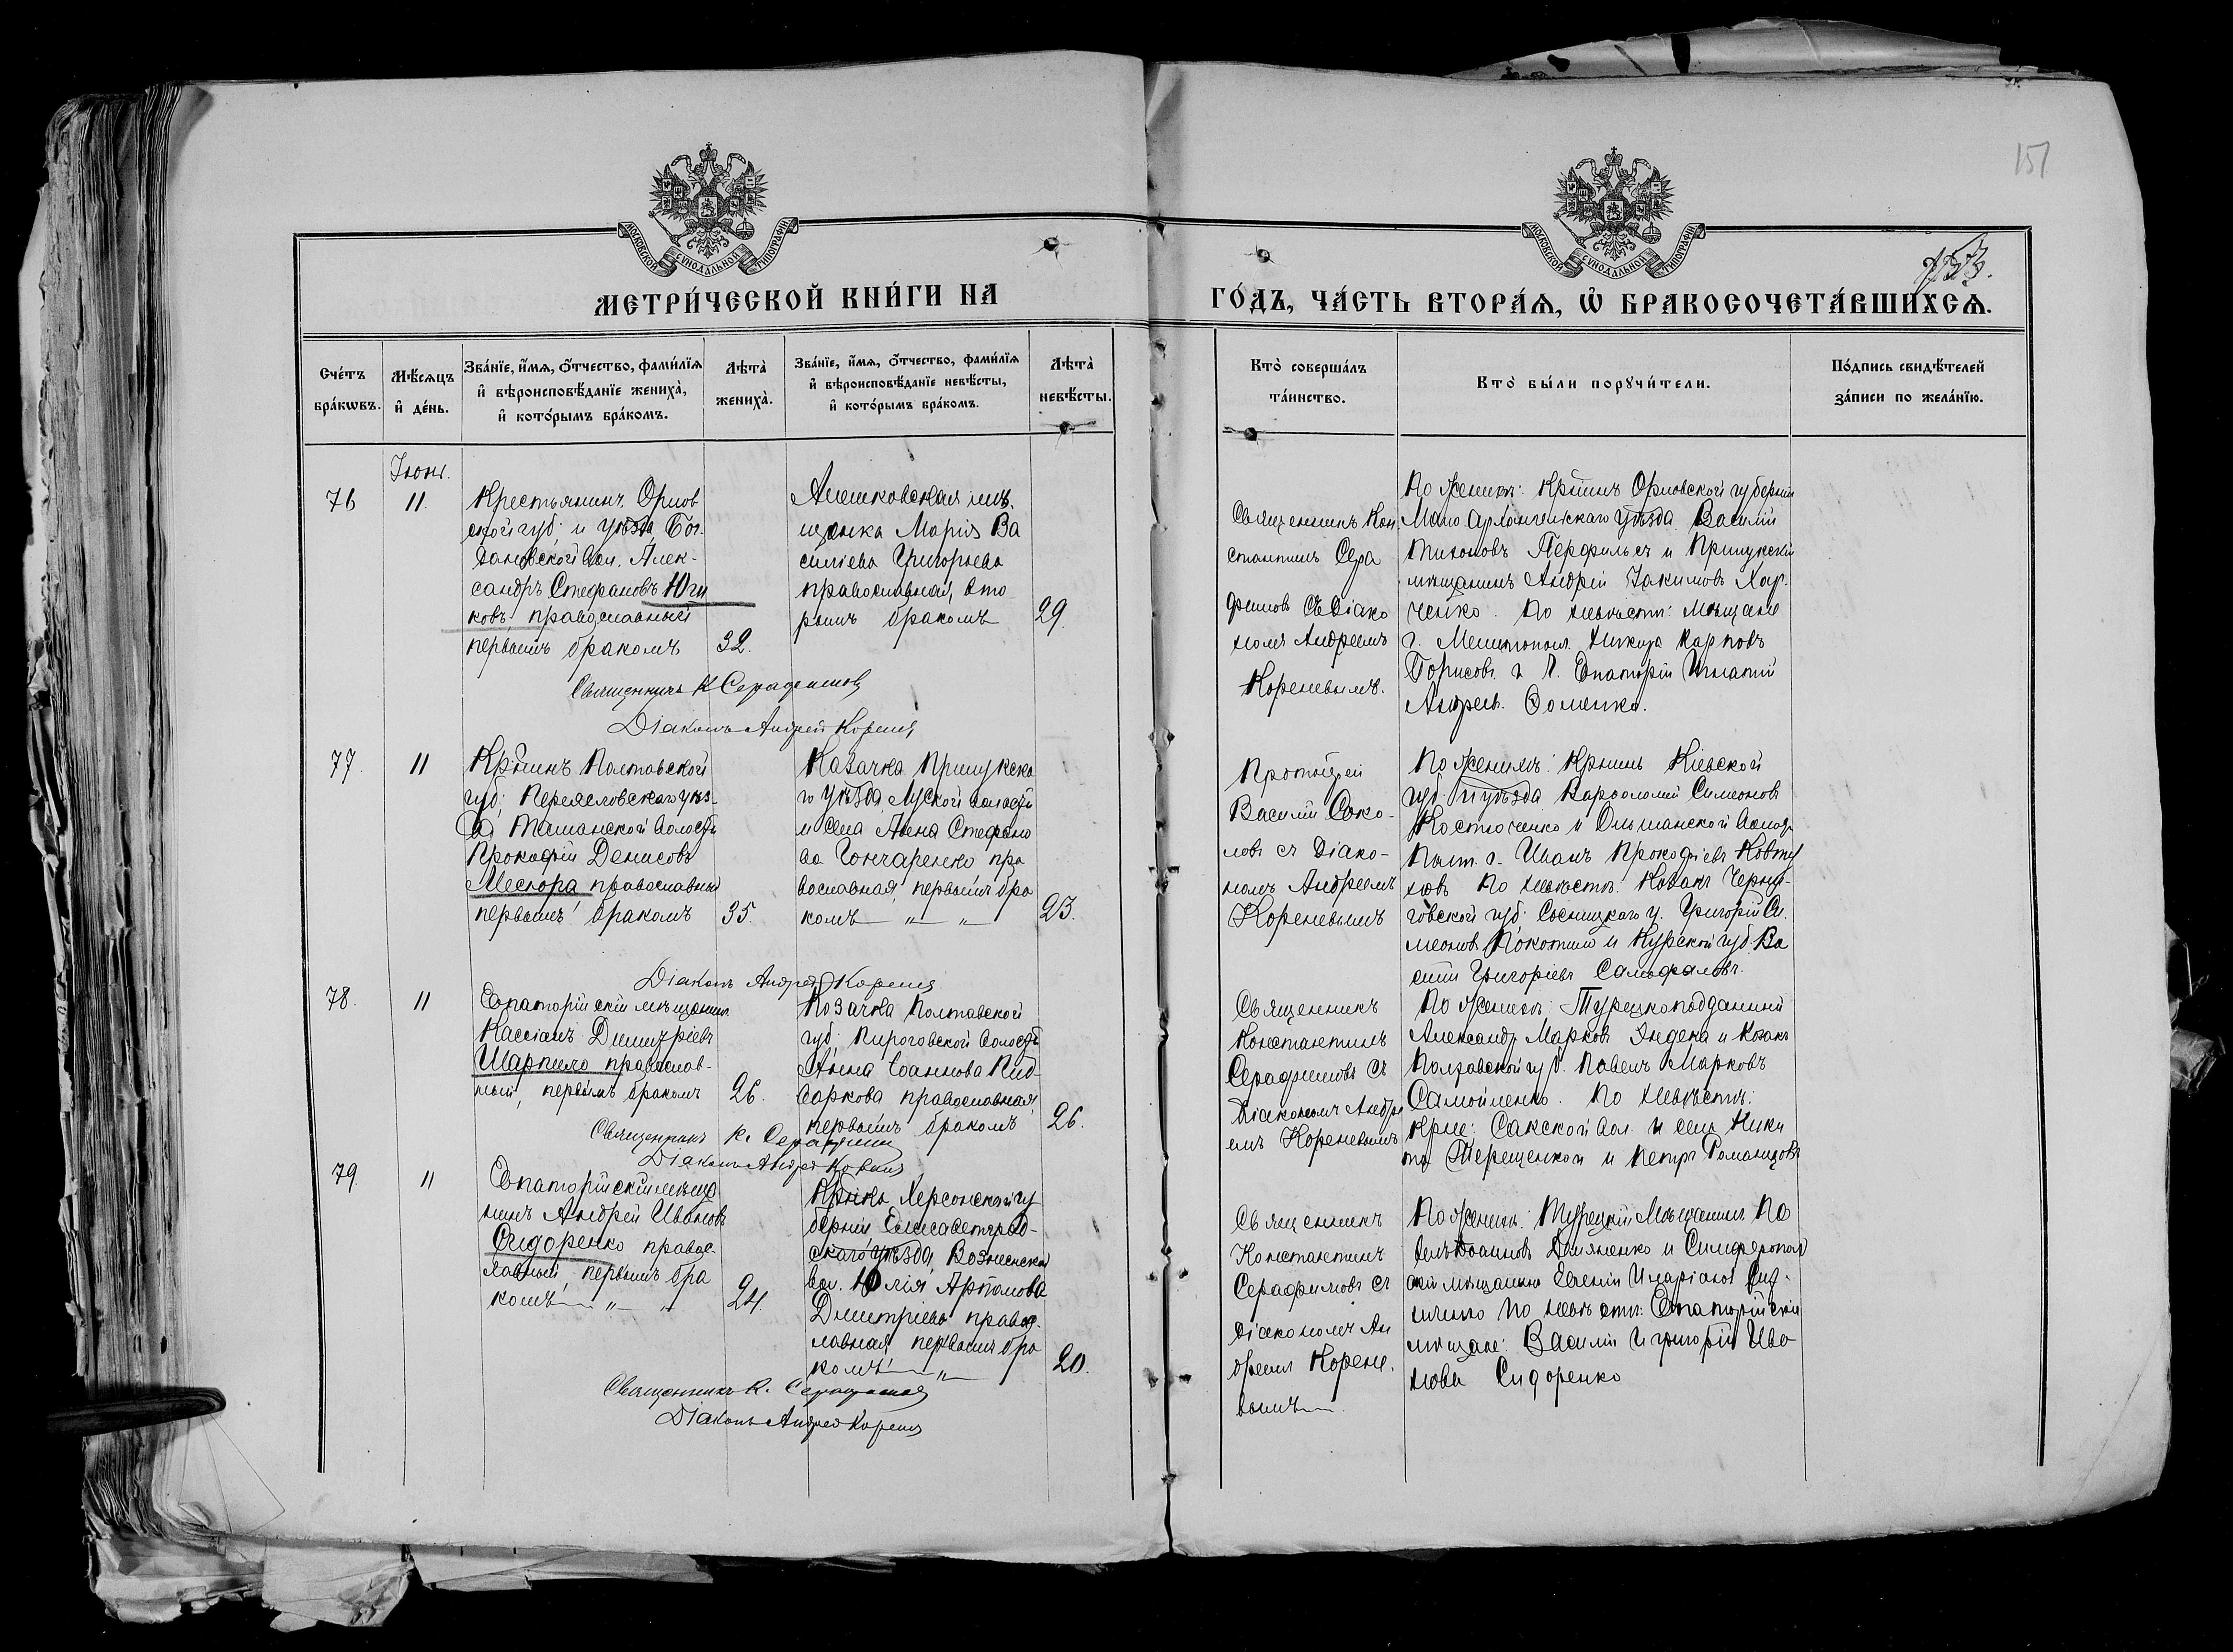 151
МОСКОВСКОЙ СѴНОДАЛЬНОЙ ТИПОГРАФІИ
МОСКОВСКОЙ СѴНОДАЛЬНОЙ ТИПОГРАФІИ
МЕТРИ́ЧЕСКОЙ КНИ́ГИ НА
ГО́ДЪ, ЧА́СТЬ ВТОРА́Ѧ, Ѽ БРАКОСОЧЕТА́ВШИХСѦ.
Сче́тъ бра́кѡвъ.
Мѣ́сѧцъ и҆ де́нь.
Зва́нїе, и҆́мѧ, ѻ҆́тчество, фами́лїѧ и҆ вѣроисповѣ́данїе жениха̀, и҆ кото́рымъ бра́комъ.
Лѣ́та̀ жениха̀.
Зва́нїе, и҆́мѧ, ѻ҆́тчество, фами́лїѧ и҆ вѣроисповѣ́данїе невѣ́сты, и҆ кото́рымъ бра́комъ.
Лѣ́та̀ невѣ́сты.
Кто̀ соверша́лъ та́инство.
Кто̀ бы́ли порꙋчи́тели.
По́дпись свидѣ́телей за́писи по жела́нїю.
Іюнь.
76
11.
Крестьянинъ Орлов
ской губ. и уѣзда, Бог-
дановской вол. Алек-
сандръ Стефановъ Юги
ковъ, православный
первымъ бракомъ
32.
Алешковская мѣ-
щанка Марія Ва
силіева Григорьева
православная, вто
рымъ бракомъ
29.
Священникъ Кон
стантинъ Сера
фимовъ съ діако
номъ Андреемъ
Кореневымъ.
По женихѣ: Кр-нинъ Орловской губерніи
Мало Архангельскаго уѣзда Василій
Тихоновъ Перфильевъ и Прилукскій
мѣщанинъ Андрей Іакимовъ Хар-
ченко. По невѣстѣ: мѣщане
г. Мелитополя Никита Карповъ
Борисовъ и г. Евпаторіи Игнатій
Андреев. Фоменко.
Священникъ К Серафимовъ
Діаконъ Андрей Кореневъ
77.
11
Кр-нинъ Полтавской
губ. Переяславскаго уѣз-
да, Ташанской волости
Прокофій Денисовъ
Меспора православный
первымъ бракомъ
35.
Казачка Прилукска
го уѣзда Луской волости
и села Анна Стефано
ва Гончаренко пра
вославная, первымъ бра
комъ — „ — „
23.
Протоіерей
Василій Соко-
ловъ съ діако-
номъ Андреемъ
Кореневымъ
По женихѣ: Кр-нинъ Кіевской
губ. и уѣзда Варфоломей Симеоновъ
Костюченко и Ольшанской волос
Полт. г. Иванъ Прокофіевъ Ковту
новъ По невѣстѣ: Козакъ Черни-
говской губ. Сосницкаго у. Григорій Си-
меоновъ Покотило и Курской губ. Ва
силій Григоріевъ Самофаловъ.
Діаконъ Андрей Кореневъ
78.
11
Евпаторійскій мѣщанинъ
Кассіанъ Димитріевъ
Шарпило православ-
ный, первымъ бракомъ
26.
Козачка Полтавской
губ. Пироговской волости
Анна Іоаннова Пид-
варкова православная,
первымъ бракомъ
26.
Священникъ
Константинъ
Серафимовъ съ
діакономъ Андре
емъ Кореневымъ
По женихѣ: Турецкоподданный
Александр Марковъ Индека и Козакъ
Полтавской губ. Павелъ Марковъ
Самойленко. По невѣстѣ:
Кр-не: Сакской вол. и села Ники
та Терещенков и Петръ Романцовъ
Священникъ К. Серафимовъ
Діаконъ Андрей Кореневъ
79
11
Евпаторійскій мѣща
нинъ Андрей Ивановъ
Сидоренко правос-
лавный, первымъ бра
комъ — „ — „
24.
Кр-нка Херсонской гу
берніи Елисаветград-
скаго уѣзда, Вознесенской
вол. Юлія Артамова
Дмитріева правос-
лавная, первымъ бра
комъ — „
20.
Священникъ
Константинъ
Серафимовъ съ
діакономъ Ан
дреемъ Корене-
вымъ —
По женихѣ: Турецкій мѣщанинъ Па
велъ Іоанновъ Демяненко и Симферополь
скій мѣщанинъ Евгеній Иларіонов
По невѣстѣ: Евпаторійскіе
мѣщане: Василій и Григорій Ива
новы Сидоренко
Священникъ К. Серафимовъ
Діаконъ Андрей Кореневъ